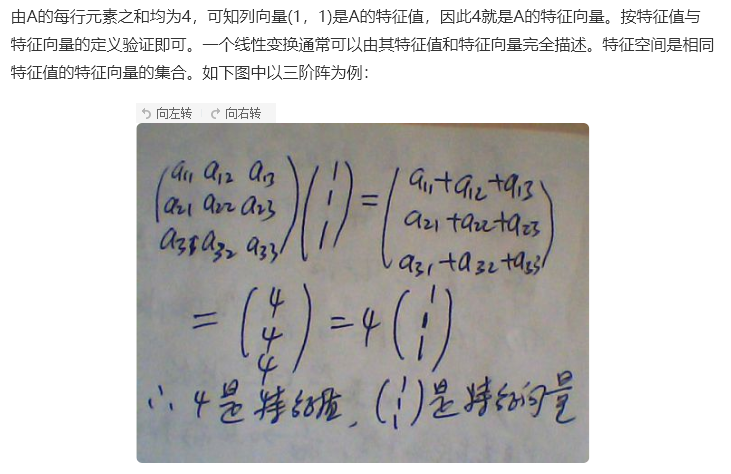 由A的每行元素之和均为4，可知列向量(1，1)是A的特征值，因此4就是A的特征向量。按特征值与
特征向量的定义验证即可。一个线性变换通常可以由其特征值和特征向量完全描述。特征空间是相同
特征值的特征向量的集合。如下图中以三阶阵为例：
向左转 向右转
(a11 a12 a13 (1 = (a11+a12+a13
a21 a22 a23 1 a21+a22+a23
a31 a32 a33) 1) a31+a32+a33)
= (4 4 4) = 4 (1 1 1)
∴ 4是特征值，(1 1 1)是特征向量